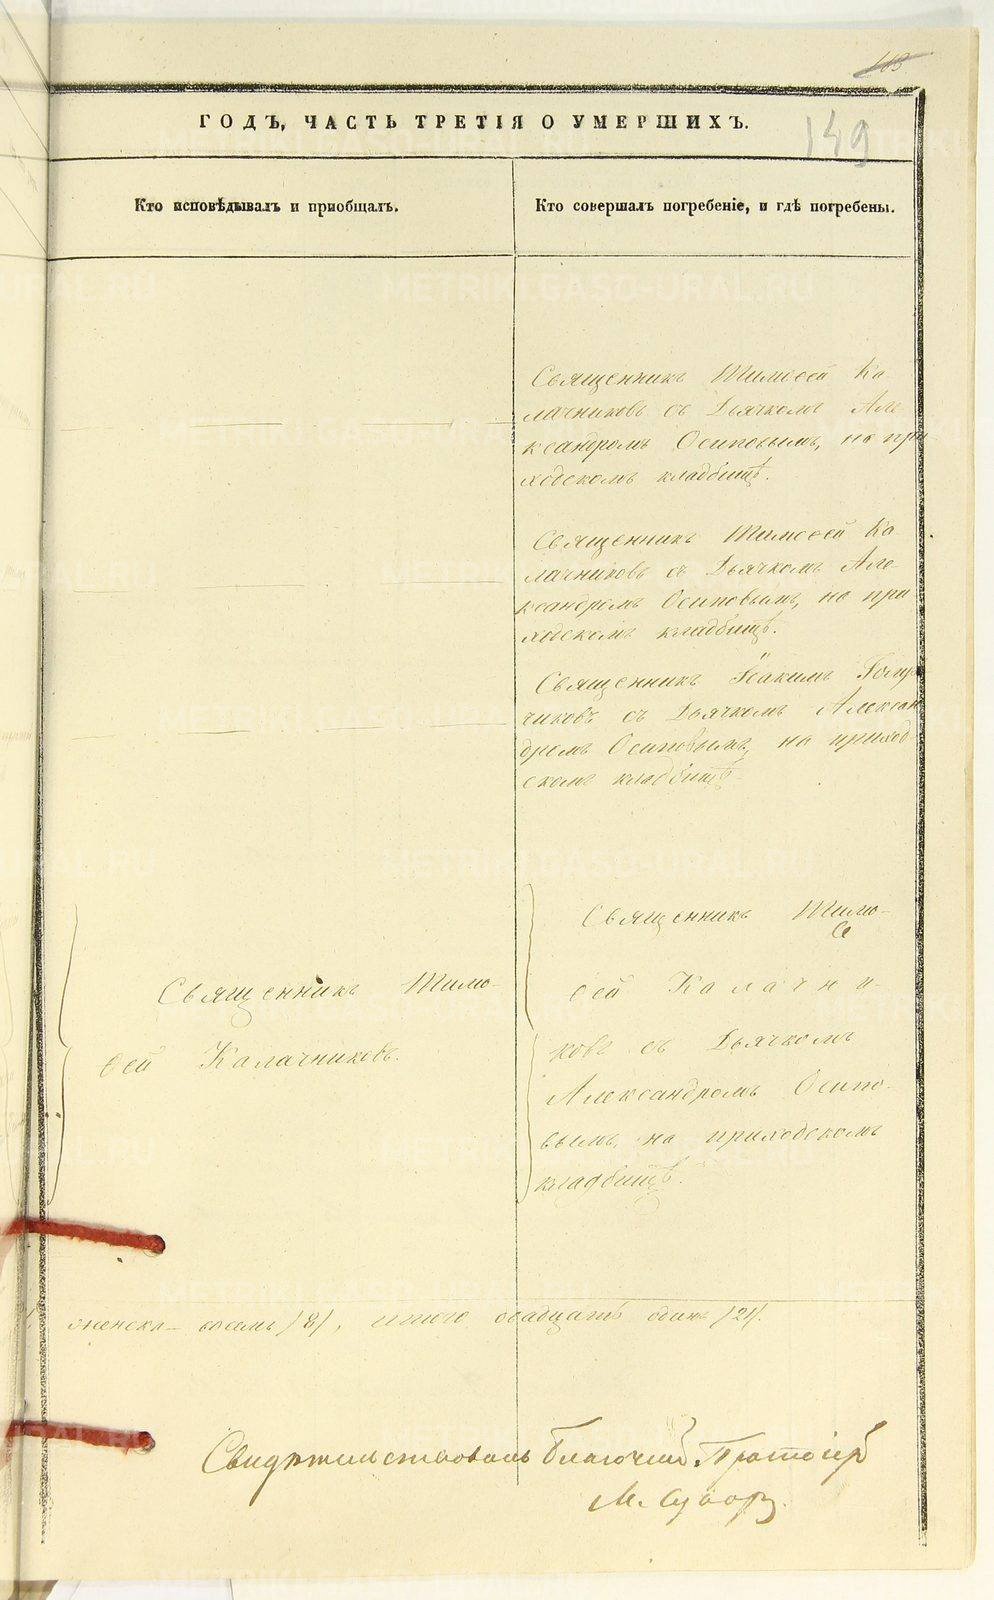 103
ГОДЪ, ЧАСТЬ ТРЕТІЯ О УМЕРШИХЪ.
149
Кто исповѣдывалъ и пріобщалъ.
Кто совершалъ погребеніе, и гдѣ погребены.
Священникъ Тимоѳей Ка
лачниковъ съ Дьячкомъ Але
ксандромъ Осиповымъ, на при
ходскомъ кладбищѣ.
Священникъ Тимоѳей Ка
лачниковъ съ Дьячкомъ Але-
ксандромъ Осиповымъ, на при
ходскомъ кладбищѣ.
Священникъ Іоакимъ
чиковъ съ Дьячкомъ Алексан
дромъ Осиповымъ, на приход
скомъ кладбищѣ
Священникъ Тимо-
ѳей Калачниковъ.
Священникъ Тимо-
ѳей Калачни-
ковъ съ Дьячкомъ
Александромъ Осипо-
вымъ, на приходскомъ
кладбищѣ.
женска восемь /8/, итого двадцать одинъ /21/.
Свидѣтельствовалъ Благочин Протоіер
METRIKI.GASO-URAL.RU